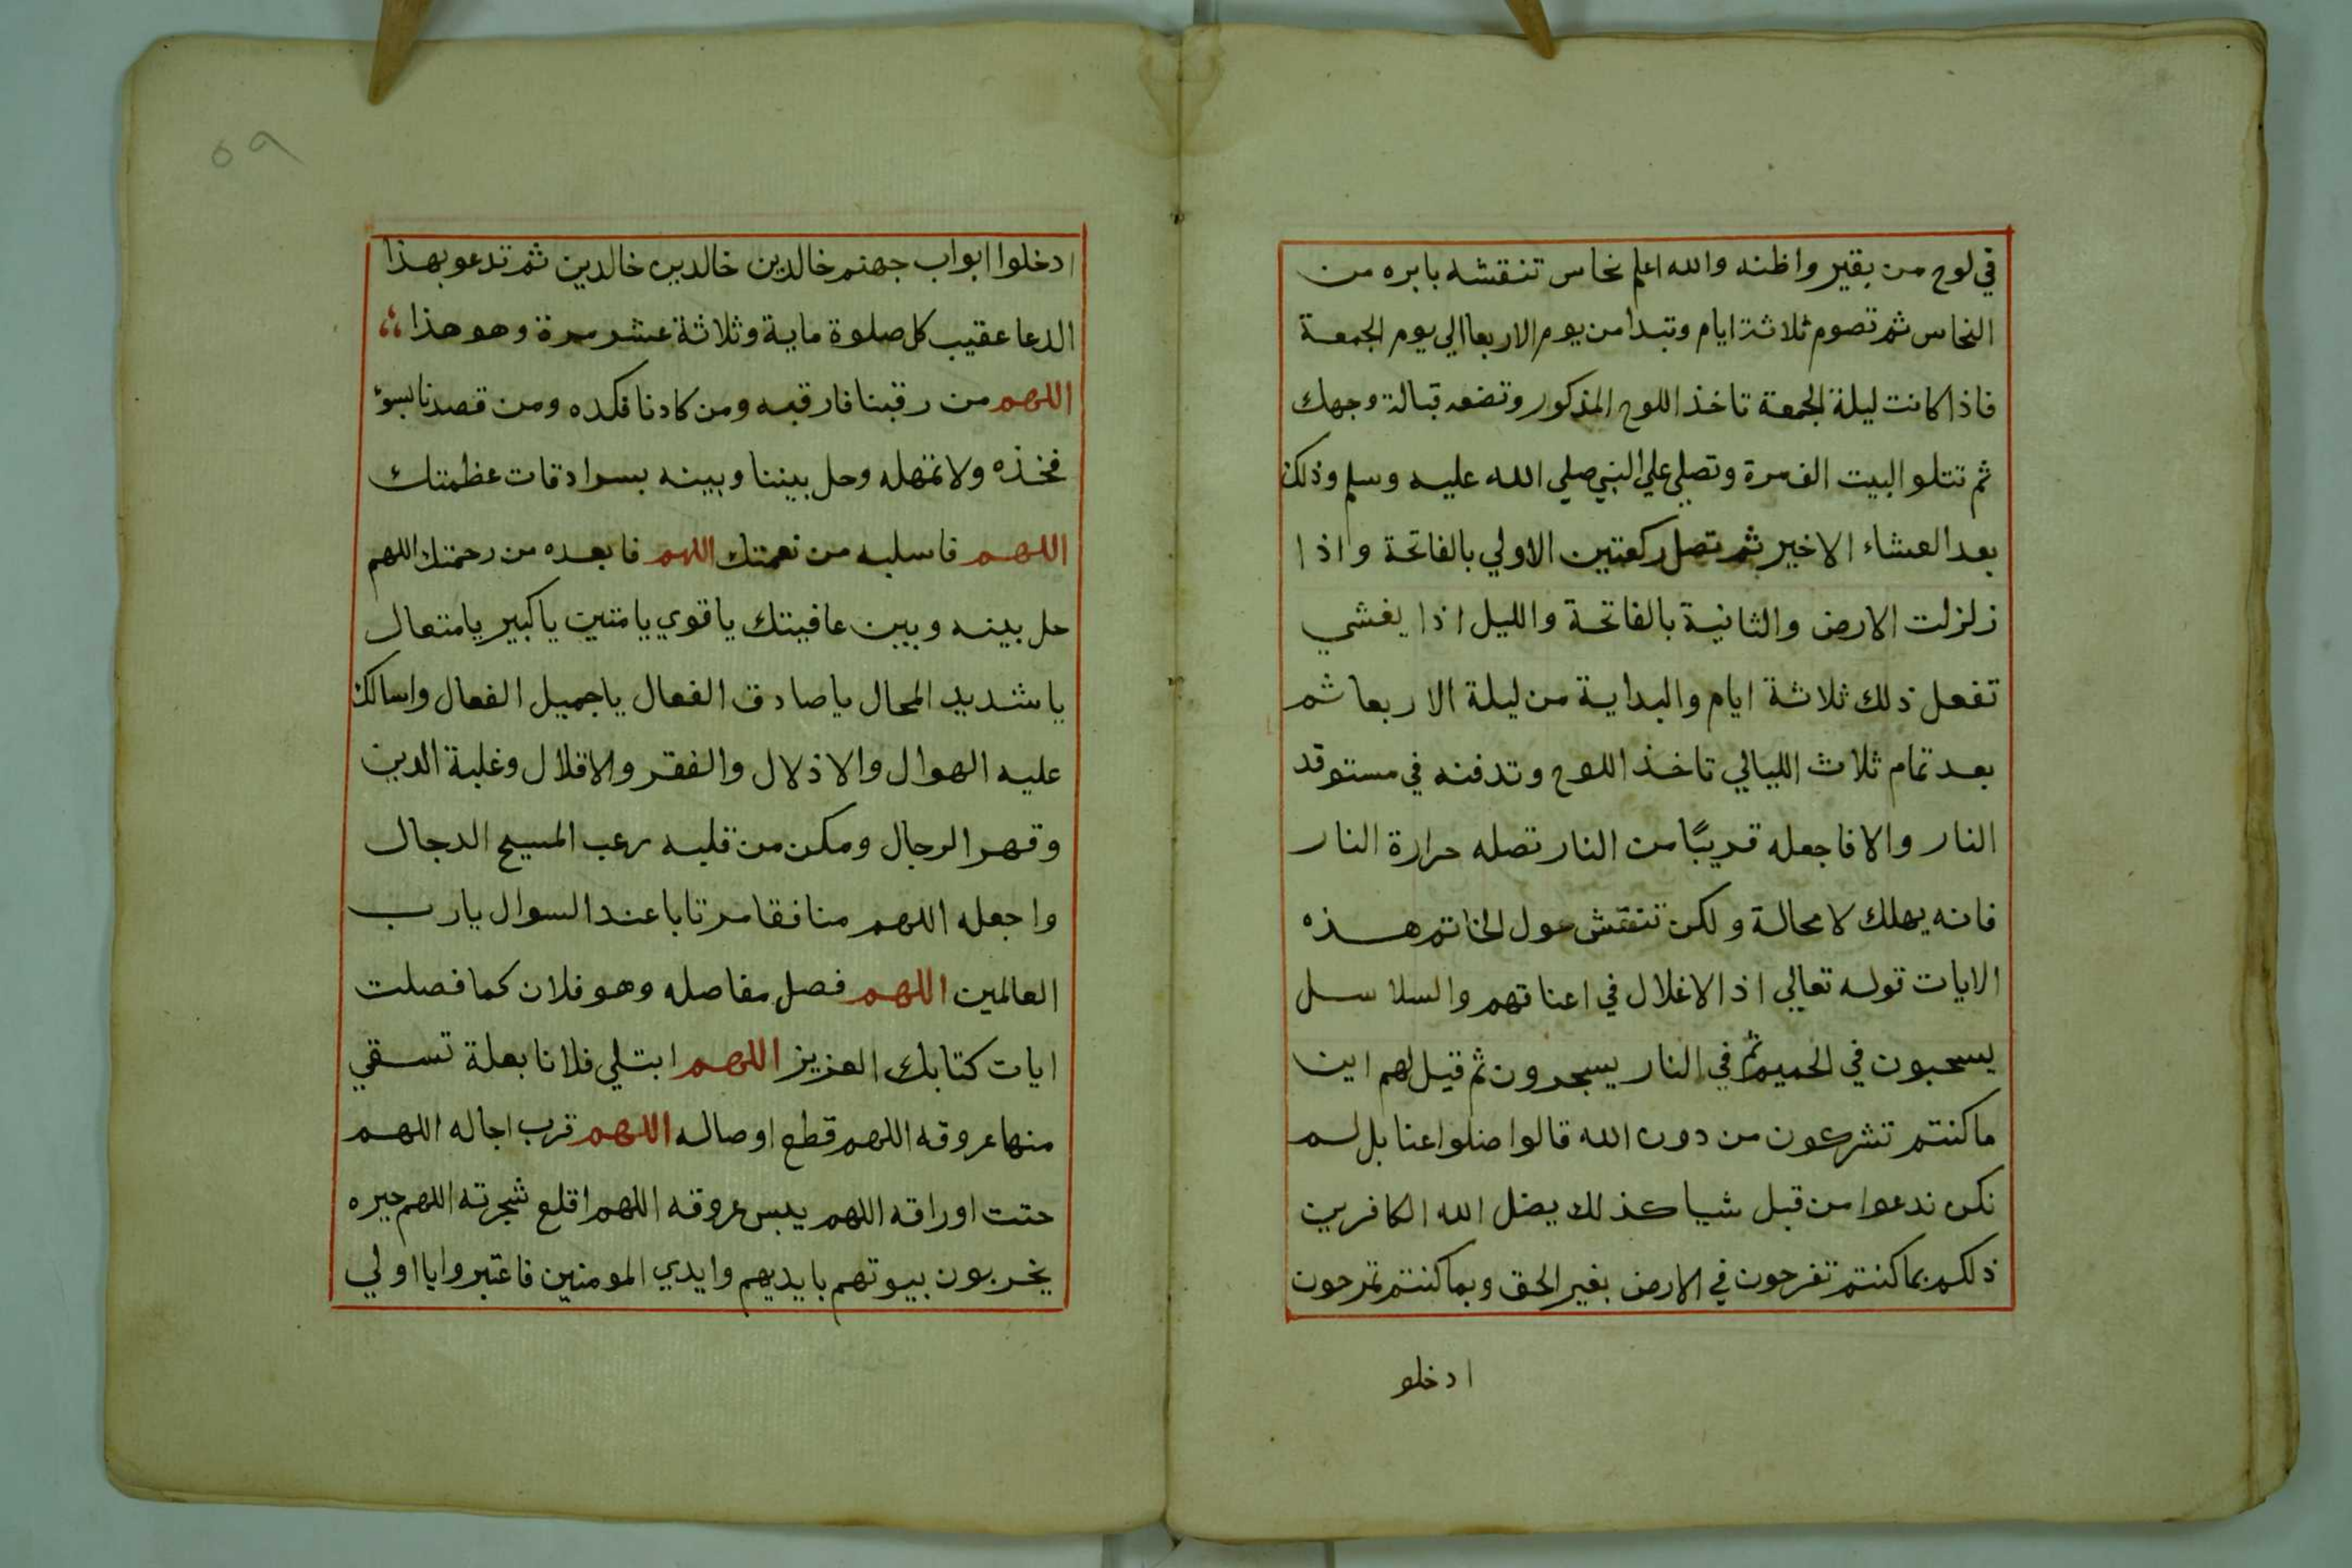 في لوح من بقير واظنه والله اعلم نحاس تنقشه بابره من
النحاس ثم تصوم ثلاثة ايام وتبدا من يوم الاربعا الي يوم الجمعة
فاذا كانت ليلة الجمعة تاخذ اللوح المذكور وتضعه قبالة وجهك
ثم تتلو البيت الف مرة وتصلي علي النبي صلي الله عليه وسلم وذلك
بعد العشاء الاخير ثم تصل ركعتين الاولي بالفاتحة واذا
زلزلت الارض والثانية بالفاتحة والليل اذا يغشي
تفعل ذلك ثلاثة ايام والبداية من ليلة الاربعا ثم
بعد تمام ثلاث الليالي تاخذ اللوح وتدفنه في مستوقد
النار والا فاجعله قريبًا من النار تصله حرارة النار
فانه يهلك لا محالة ولكن تنقش حول الخاتم هذه
الايات قوله تعالي اذ الاغلال في اعناقهم والسلاسل
يسحبون في الحميم ثم في النار يسجرون ثم قيل لهم اين
ما كنتم تشركون من دون الله قالوا ضلوا عنا بل لم
نكن ندعوا من قبل شيا كذلك يضل الله الكافرين
ذلكم بما كنتم تفرحون في الارض بغير الحق وبما كنتم تمرحون
ادخلو
٥٩
ادخلوا ابواب جهنم خالدين خالدين خالدين ثم تدعو بهذا
الدعا عقيب كل صلوة ماية وثلاثة عشر مرة وهو هذا
اللهم من رقبنا فارقبه ومن كادنا فكده ومن قصدنا بسوٴ
فخذه ولا تمهله وحل بيننا وبينه بسرادقات عظمتك
اللهم فاسلبه من نعمتك اللهم فابعده من رحمتك اللهم
حل بينه وبين عافيتك يا قوي يا متين يا كبير يا متعال
يا شديد المحال يا صادق الفعال يا جميل الفعال واسالك
عليه الهوال والاذلال والفقر والاقلال وغلبة الدين
وقهر الرجال ومكن من قلبه رعب المسيح الدجال
واجعله اللهم منافقا مرتابا عند السوال يا رب
العالمين اللهم فصل مفاصله وهو فلان كما فصلت
ايات كتابك العزيز اللهم ابتلي فلانا بعلة تسقي
منها عروقه اللهم قطع اوصاله اللهم قرب اجاله اللهم
حتت اوراقه اللهم يبس عروقه اللهم اقلع شجرته اللهم حيره
يخربون بيوتهم بايديهم وايدي المومنين فاعتبروا يا اولي